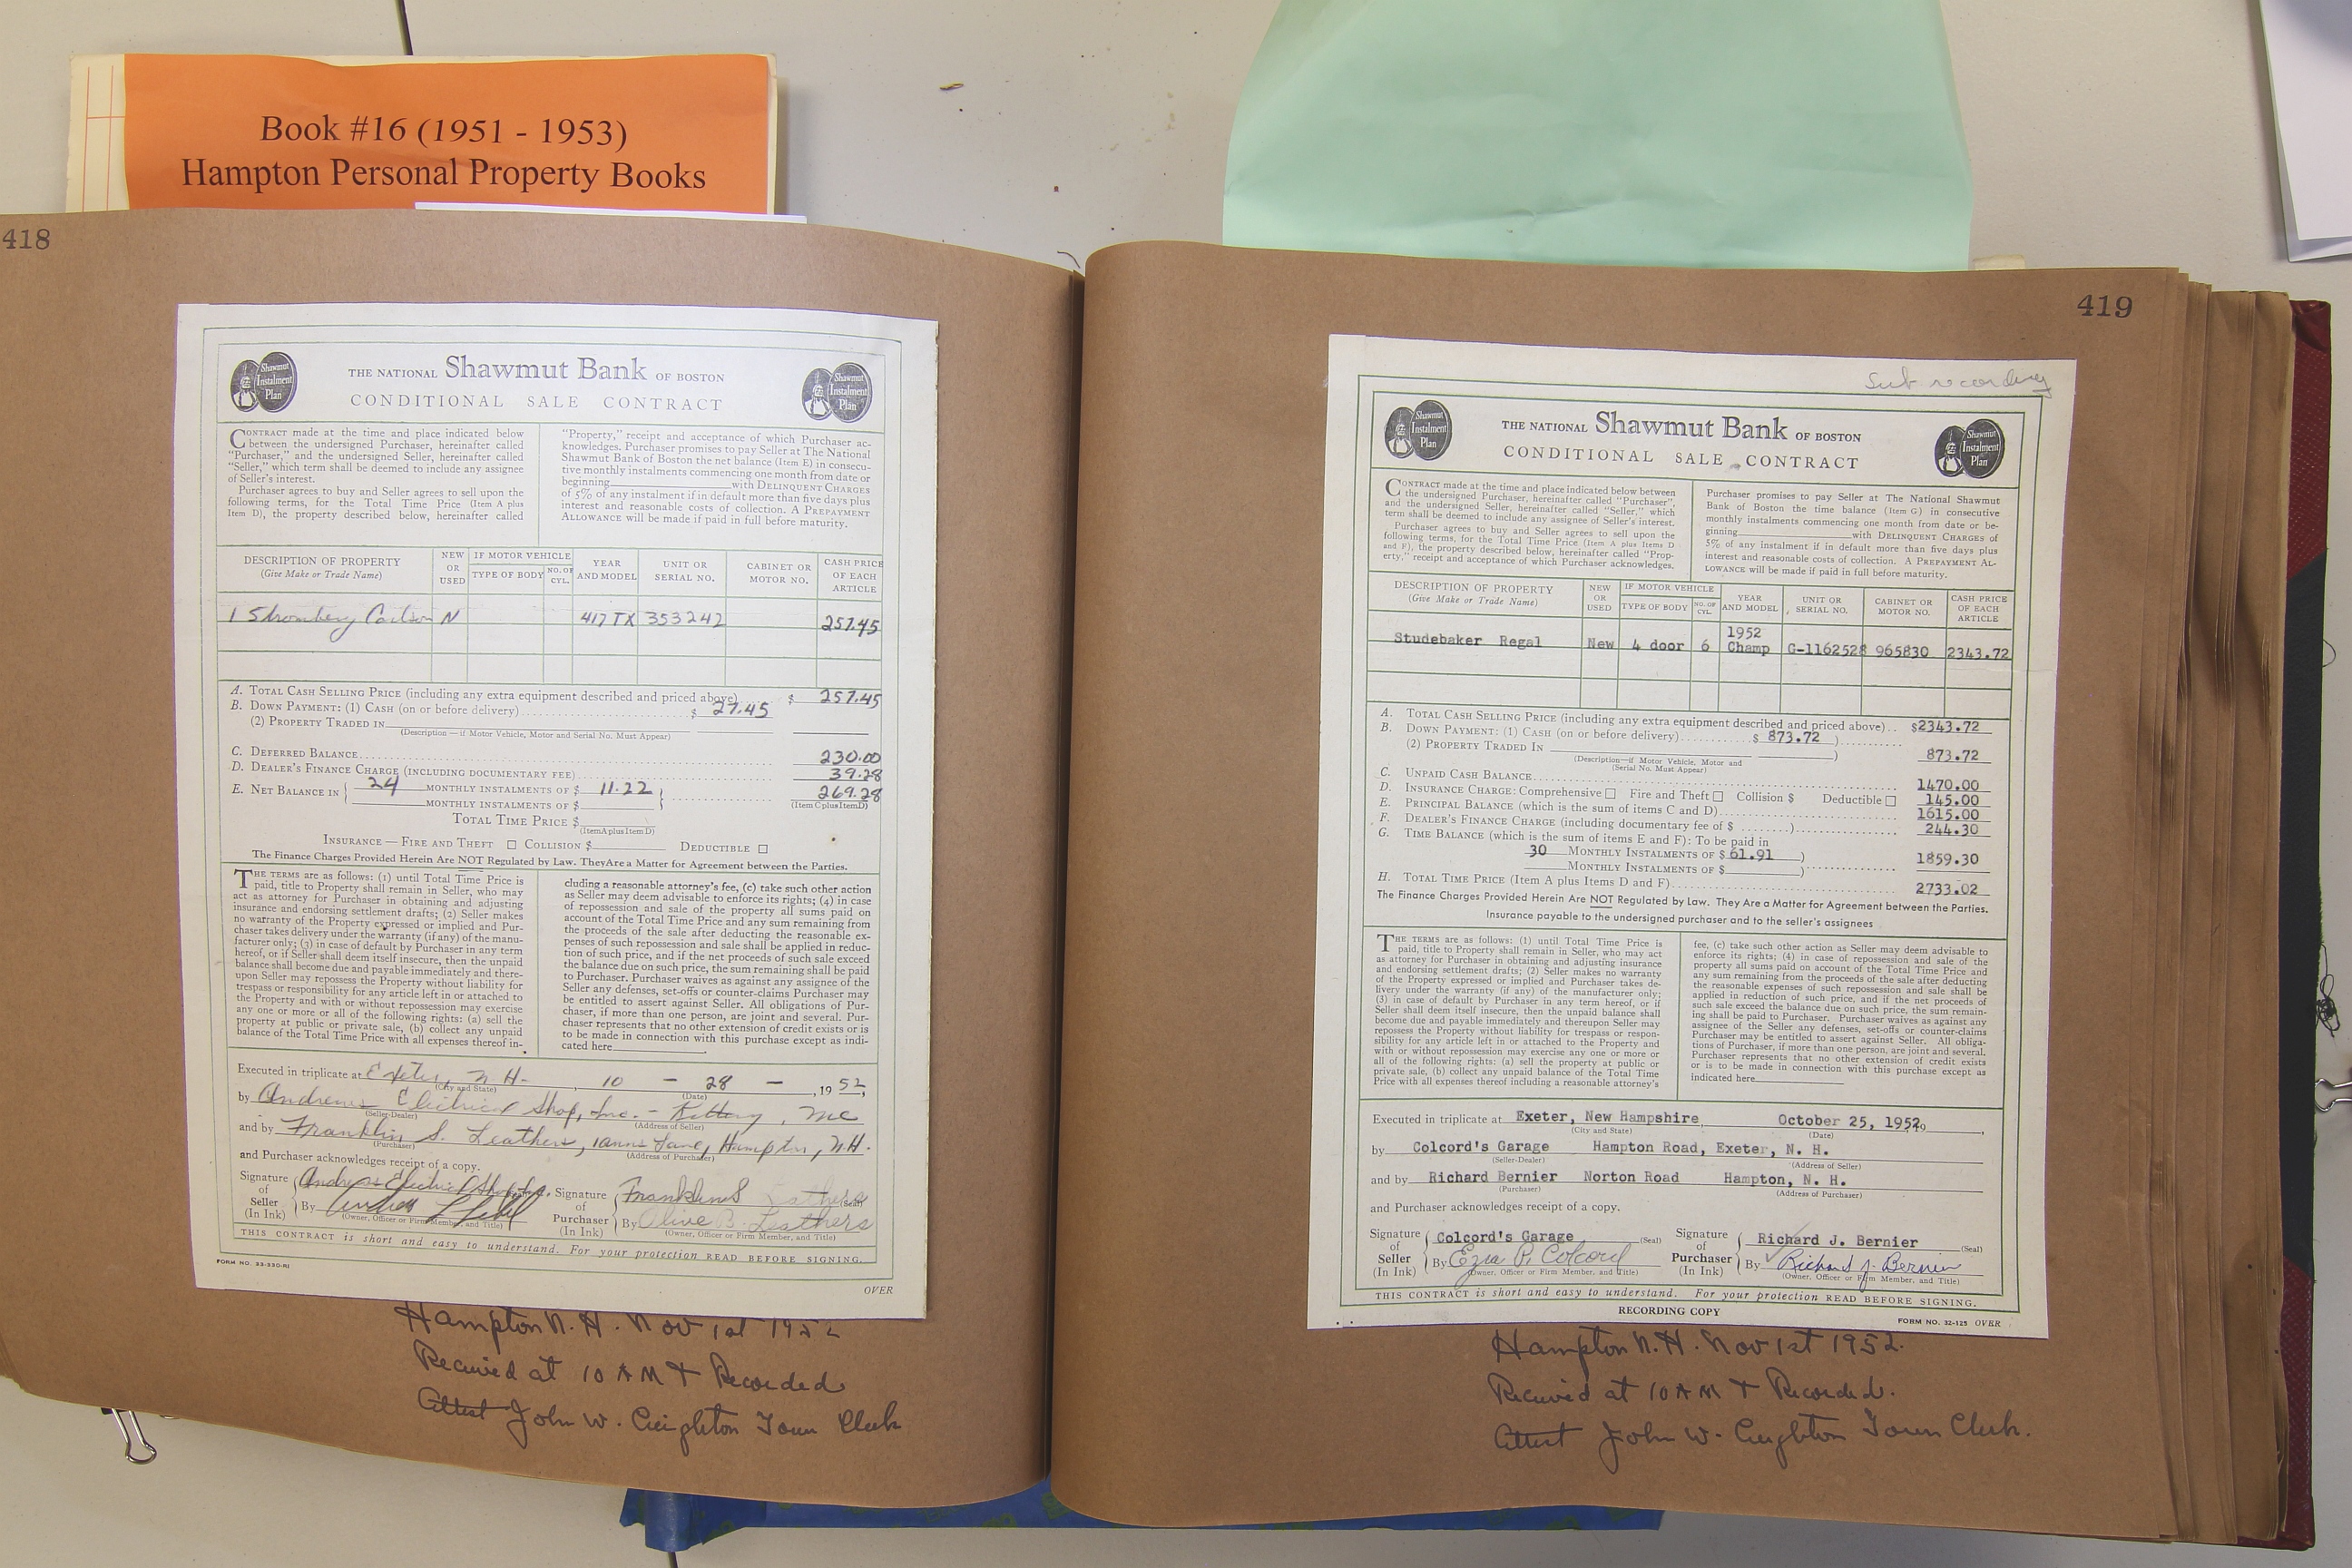 Book #16 (1951 - 1953)
Hampton Personal Property Books
418
Shawmut
Instalment
Plan
THE NATIONAL Shawmut Bank OF BOSTON
CONDITIONAL SALE CONTRACT
Shawmut
Instalment
Plan
CONTRACT made at the time and place indicated below
between the undersigned Purchaser, hereinafter called
"Purchaser," and the undersigned Seller, hereinafter called
"Seller," which term shall be deemed to include any assignee
of Seller's interest.
Purchaser agrees to buy and Seller agrees to sell upon the
following terms, for the Total Time Price (Item A plus
Item D), the property described below, hereinafter called
"Property," receipt and acceptance of which Purchaser ac-
knowledges. Purchaser promises to pay Seller at The National
Shawmut Bank of Boston the net balance (Item E) in consecu-
tive monthly instalments commencing one month from date or
beginning with DELINQUENT CHARGES
of 5% of any instalment if in default more than five days plus
interest and reasonable costs of collection. A PREPAYMENT
ALLOWANCE will be made if paid in full before maturity.
DESCRIPTION OF PROPERTY (Give Make or Trade Name) NEW OR USED IF MOTOR VEHICLE TYPE OF BODY NO. OF CYL. YEAR AND MODEL UNIT OR SERIAL NO. CABINET OR MOTOR NO. CASH PRICE OF EACH ARTICLE
1 Stromberg Carlson N 417 TX 353242 257.45
A. TOTAL CASH SELLING PRICE (including any extra equipment described and priced above) $ 257.45
B. DOWN PAYMENT: (1) CASH (on or before delivery) $ 27.45
(2) PROPERTY TRADED IN
(Description—if Motor Vehicle, Motor and Serial No. Must Appear)
C. DEFERRED BALANCE 230.00
D. DEALER'S FINANCE CHARGE (INCLUDING DOCUMENTARY FEE) 39.28
E. NET BALANCE IN { 24 MONTHLY INSTALMENTS OF $ 11.22 } 269.28
MONTHLY INSTALMENTS OF $ (Item C plus Item D)
TOTAL TIME PRICE $
(Item A plus Item D)
INSURANCE — FIRE AND THEFT □ COLLISION $ DEDUCTIBLE □
The Finance Charges Provided Herein Are NOT Regulated by Law. They Are a Matter for Agreement between the Parties.
THE TERMS are as follows: (1) until Total Time Price is
paid, title to Property shall remain in Seller, who may
act as attorney for Purchaser in obtaining and adjusting
insurance and endorsing settlement drafts; (2) Seller makes
no warranty of the Property expressed or implied and Pur-
chaser takes delivery under the warranty (if any) of the manu-
facturer only; (3) in case of default by Purchaser in any term
hereof, or if Seller shall deem itself insecure, then the unpaid
balance shall become due and payable immediately and there-
upon Seller may repossess the Property without liability for
trespass or responsibility for any article left in or attached to
the Property and with or without repossession may exercise
any one or more or all of the following rights: (a) sell the
property at public or private sale, (b) collect any unpaid
balance of the Total Time Price with all expenses thereof in-
cluding a reasonable attorney's fee, (c) take such other action
as Seller may deem advisable to enforce its rights; (4) in case
of repossession and sale of the property all sums paid on
account of the Total Time Price and any sum remaining from
the proceeds of the sale after deducting the reasonable ex-
penses of such repossession and sale shall be applied in reduc-
tion of such price, and if the net proceeds of such sale exceed
the balance due on such price, the sum remaining shall be paid
to Purchaser. Purchaser waives as against any assignee of the
Seller any defenses, set-offs or counter-claims Purchaser may
be entitled to assert against Seller. All obligations of Pur-
chaser, if more than one person, are joint and several. Pur-
chaser represents that no other extension of credit exists or is
to be made in connection with this purchase except as indi-
cated here
Executed in triplicate at Exeter, N.H. 10 - 28 - , 19 52,
(City and State) (Date)
by Andrews Electrical Shop, Inc. - Kittery, Me
(Seller-Dealer) (Address of Seller)
and by Franklin S. Leathers, Lane, Hampton, N.H.
(Purchaser) (Address of Purchaser)
and Purchaser acknowledges receipt of a copy.
Signature of Seller (In Ink)
Andrews Electrical Shop, Inc.
By
(Owner, Officer or Firm Member, and Title)
Signature of Purchaser (In Ink)
Franklin S Leathers (Seal)
By Olive B. Leathers
(Owner, Officer or Firm Member, and Title)
THIS CONTRACT is short and easy to understand. For your protection READ BEFORE SIGNING.
FORM NO. 33-330-RI
OVER
Hampton N.H. Nov 1st 1952
Received at 10 AM & Recorded
Attest John W. Creighton Town Clerk
419
Sub recording
Shawmut
Instalment
Plan
THE NATIONAL Shawmut Bank OF BOSTON
CONDITIONAL SALE CONTRACT
Shawmut
Instalment
Plan
CONTRACT made at the time and place indicated below between
the undersigned Purchaser, hereinafter called "Purchaser",
and the undersigned Seller, hereinafter called "Seller," which
term shall be deemed to include any assignee of Seller's interest.
Purchaser agrees to buy and Seller agrees to sell upon the
following terms, for the Total Time Price (Item A plus Items D
and F), the property described below, hereinafter called "Prop-
erty," receipt and acceptance of which Purchaser acknowledges.
Purchaser promises to pay Seller at The National Shawmut
Bank of Boston the time balance (Item G) in consecutive
monthly instalments commencing one month from date or be-
ginning with DELINQUENT CHARGES of
5% of any instalment if in default more than five days plus
interest and reasonable costs of collection. A PREPAYMENT AL-
LOWANCE will be made if paid in full before maturity.
DESCRIPTION OF PROPERTY (Give Make or Trade Name) NEW OR USED IF MOTOR VEHICLE TYPE OF BODY NO. OF CYL. YEAR AND MODEL UNIT OR SERIAL NO. CABINET OR MOTOR NO. CASH PRICE OF EACH ARTICLE
Studebaker Regal New 4 door 6 1952 Champ G-1162528 965830 2343.72
A. TOTAL CASH SELLING PRICE (including any extra equipment described and priced above) $2343.72
B. DOWN PAYMENT: (1) CASH (on or before delivery) $ 873.72 )
(2) PROPERTY TRADED IN ) 873.72
(Description—if Motor Vehicle, Motor and Serial No. Must Appear)
C. UNPAID CASH BALANCE 1470.00
D. INSURANCE CHARGE: Comprehensive □ Fire and Theft □ Collision $ Deductible □ 145.00
E. PRINCIPAL BALANCE (which is the sum of items C and D) 1615.00
F. DEALER'S FINANCE CHARGE (including documentary fee of $ ) 244.30
G. TIME BALANCE (which is the sum of items E and F): To be paid in
30 MONTHLY INSTALMENTS OF $ 61.91 ) 1859.30
MONTHLY INSTALMENTS OF $ )
H. TOTAL TIME PRICE (Item A plus Items D and F) 2733.02
The Finance Charges Provided Herein Are NOT Regulated by Law. They Are a Matter for Agreement between the Parties.
Insurance payable to the undersigned purchaser and to the seller's assignees
THE TERMS are as follows: (1) until Total Time Price is
paid, title to Property shall remain in Seller, who may act
as attorney for Purchaser in obtaining and adjusting insurance
and endorsing settlement drafts; (2) Seller makes no warranty
of the Property expressed or implied and Purchaser takes de-
livery under the warranty (if any) of the manufacturer only;
(3) in case of default by Purchaser in any term hereof, or if
Seller shall deem itself insecure, then the unpaid balance shall
become due and payable immediately and thereupon Seller may
repossess the Property without liability for trespass or respon-
sibility for any article left in or attached to the Property and
with or without repossession may exercise any one or more or
all of the following rights: (a) sell the property at public or
private sale, (b) collect any unpaid balance of the Total Time
Price with all expenses thereof including a reasonable attorney's
fee, (c) take such other action as Seller may deem advisable to
enforce its rights; (4) in case of repossession and sale of the
property all sums paid on account of the Total Time Price and
any sum remaining from the proceeds of the sale after deducting
the reasonable expenses of such repossession and sale shall be
applied in reduction of such price, and if the net proceeds of
such sale exceed the balance due on such price, the sum remain-
ing shall be paid to Purchaser. Purchaser waives as against any
assignee of the Seller any defenses, set-offs or counter-claims
Purchaser may be entitled to assert against Seller. All obliga-
tions of Purchaser, if more than one person, are joint and several.
Purchaser represents that no other extension of credit exists
or is to be made in connection with this purchase except as
indicated here
Executed in triplicate at Exeter, New Hampshire October 25, 1952, 19 ,
(City and State) (Date)
by Colcord's Garage Hampton Road, Exeter, N. H.
(Seller-Dealer) (Address of Seller)
and by Richard Bernier Norton Road Hampton, N. H.
(Purchaser) (Address of Purchaser)
and Purchaser acknowledges receipt of a copy.
Signature of Seller (In Ink)
Colcord's Garage (Seal)
By Ezra P. Colcord
(Owner, Officer or Firm Member, and Title)
Signature of Purchaser (In Ink)
Richard J. Bernier (Seal)
By Richard J. Bernier
(Owner, Officer or Firm Member, and Title)
THIS CONTRACT is short and easy to understand. For your protection READ BEFORE SIGNING.
RECORDING COPY
FORM NO. 32-125 OVER
Hampton N.H. Nov 1st 1952.
Received at 10 AM & Recorded.
Attest John W. Creighton Town Clerk.